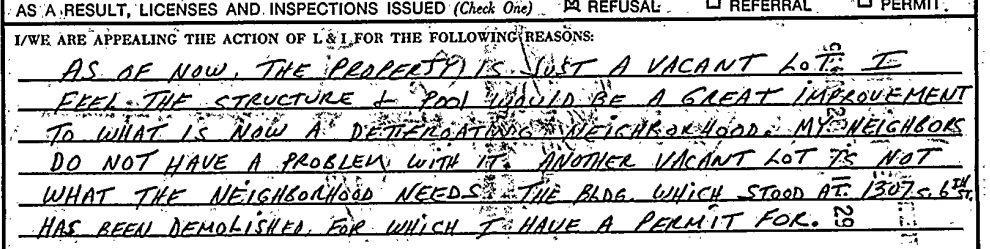 AS A RESULT, LICENSES AND INSPECTIONS ISSUED (Check One) ☒ REFUSAL ☐ REFERRAL ☐ PERMIT
I/WE ARE APPEALING THE ACTION OF L & I FOR THE FOLLOWING REASONS:
AS OF NOW, THE PROPERTY IS JUST A VACANT LOT. I
FEEL THE STRUCTURE & POOL WOULD BE A GREAT IMPROVEMENT
TO WHAT IS NOW A DETTEROATING NEIGHBORHOOD. MY NEIGHBORS
DO NOT HAVE A PROBLEM WITH IT. ANOTHER VACANT LOT IS NOT
WHAT THE NEIGHBORHOOD NEEDS. THE BLDG. WHICH STOOD AT 1307 S. 6TH ST.
HAS BEEN DEMOLISHED, FOR WHICH I HAVE A PERMIT FOR.